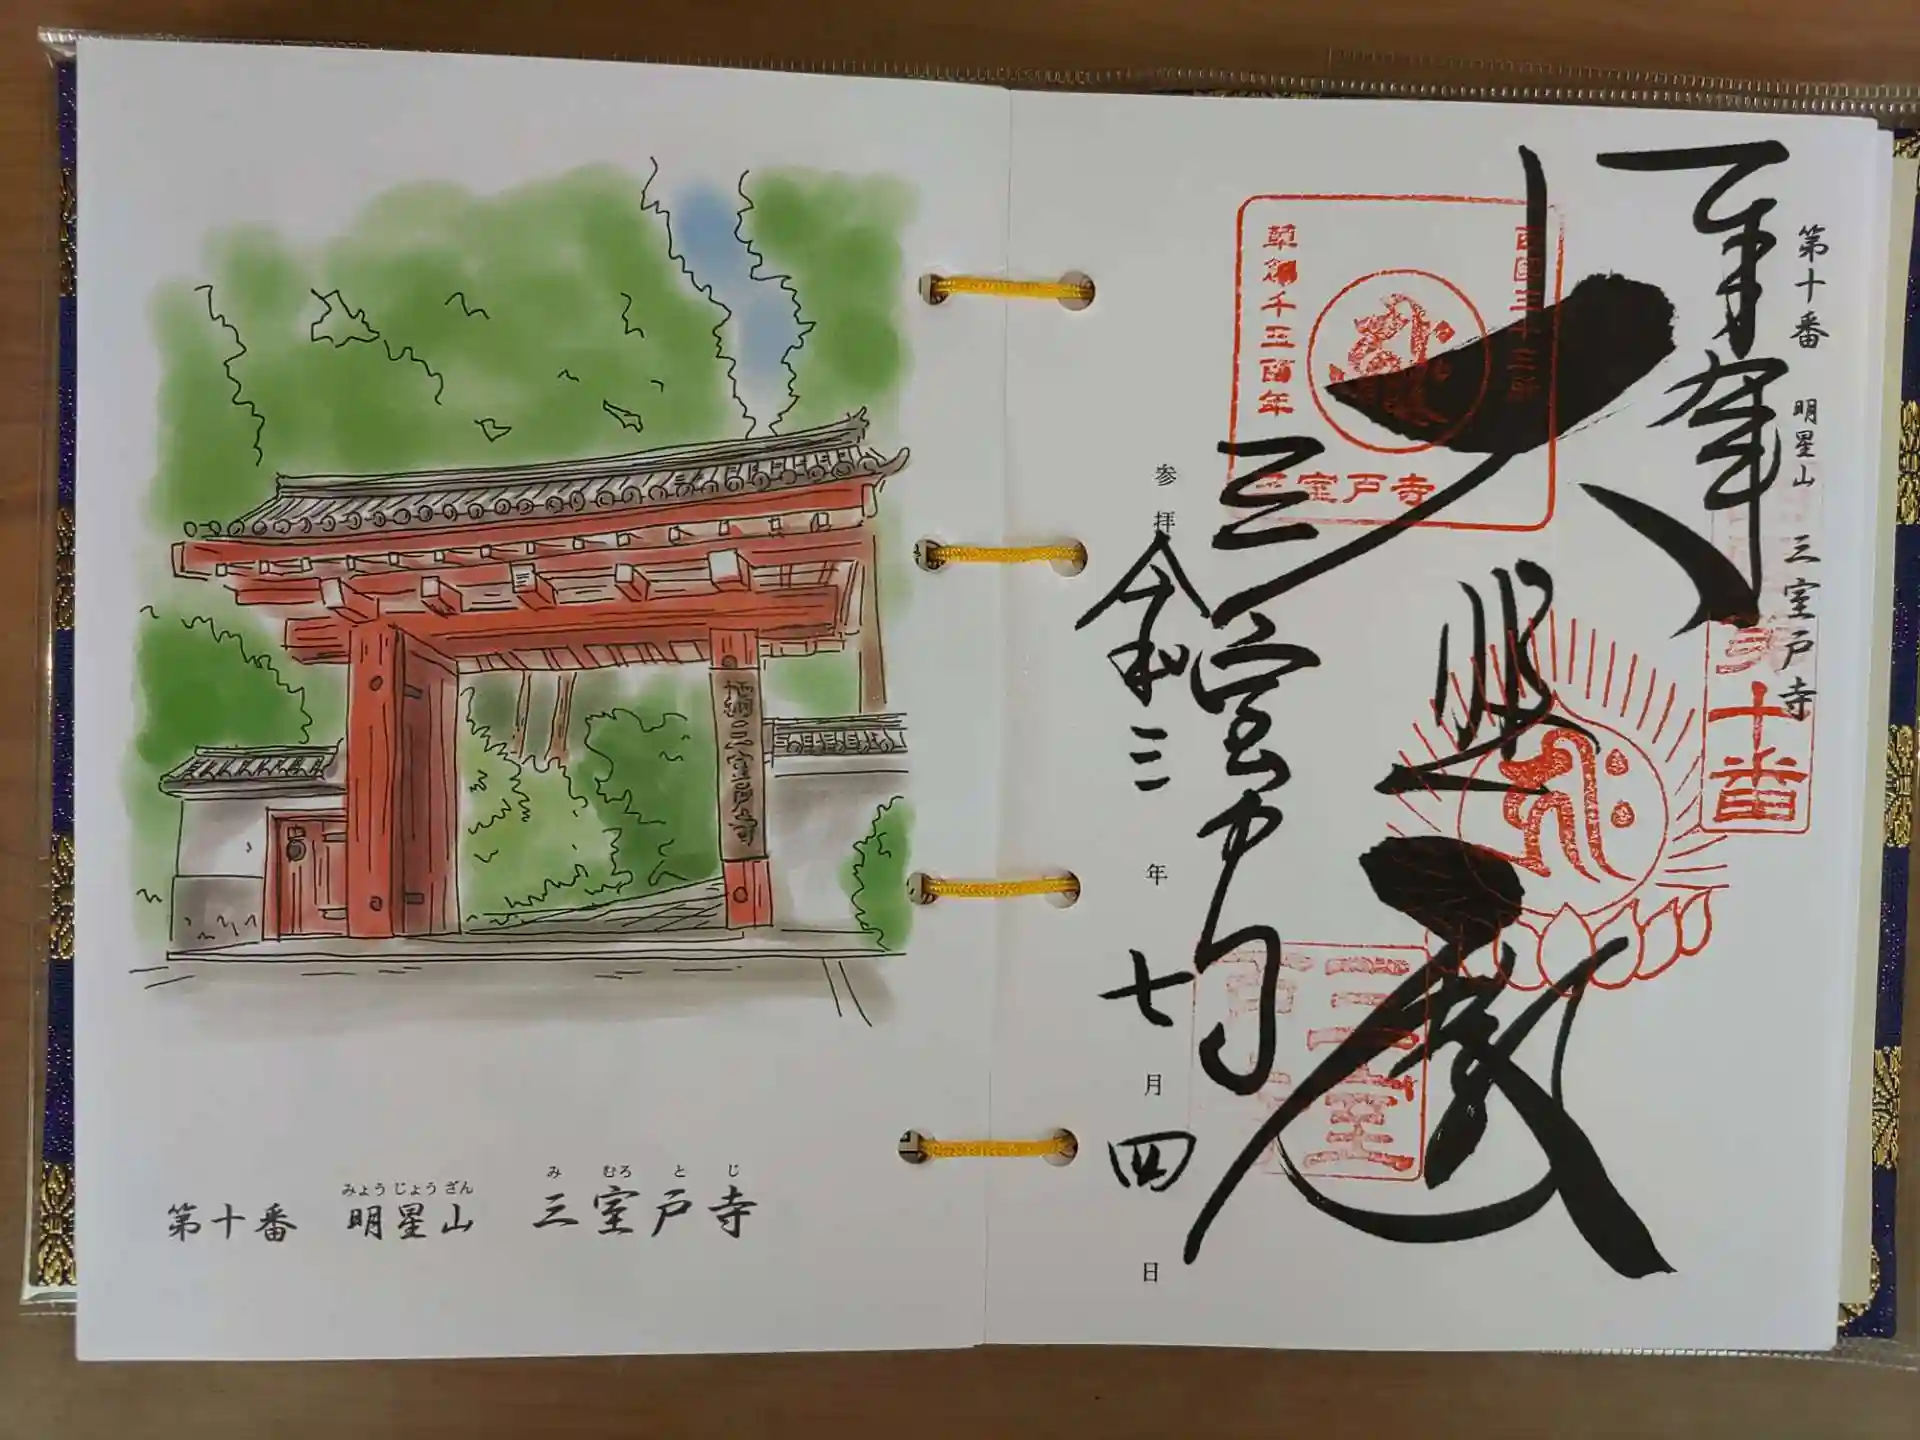 みょうじょうざん
み むろ と じ
第十番 明星山 三室戸寺
西国三室戸寺
第十番 明星山 三室戸寺
奉拝
西国三十三所
草創千三百年
三室戸寺
十番
大悲殿
三室戸寺
三室
参拝
令和三年七月四日